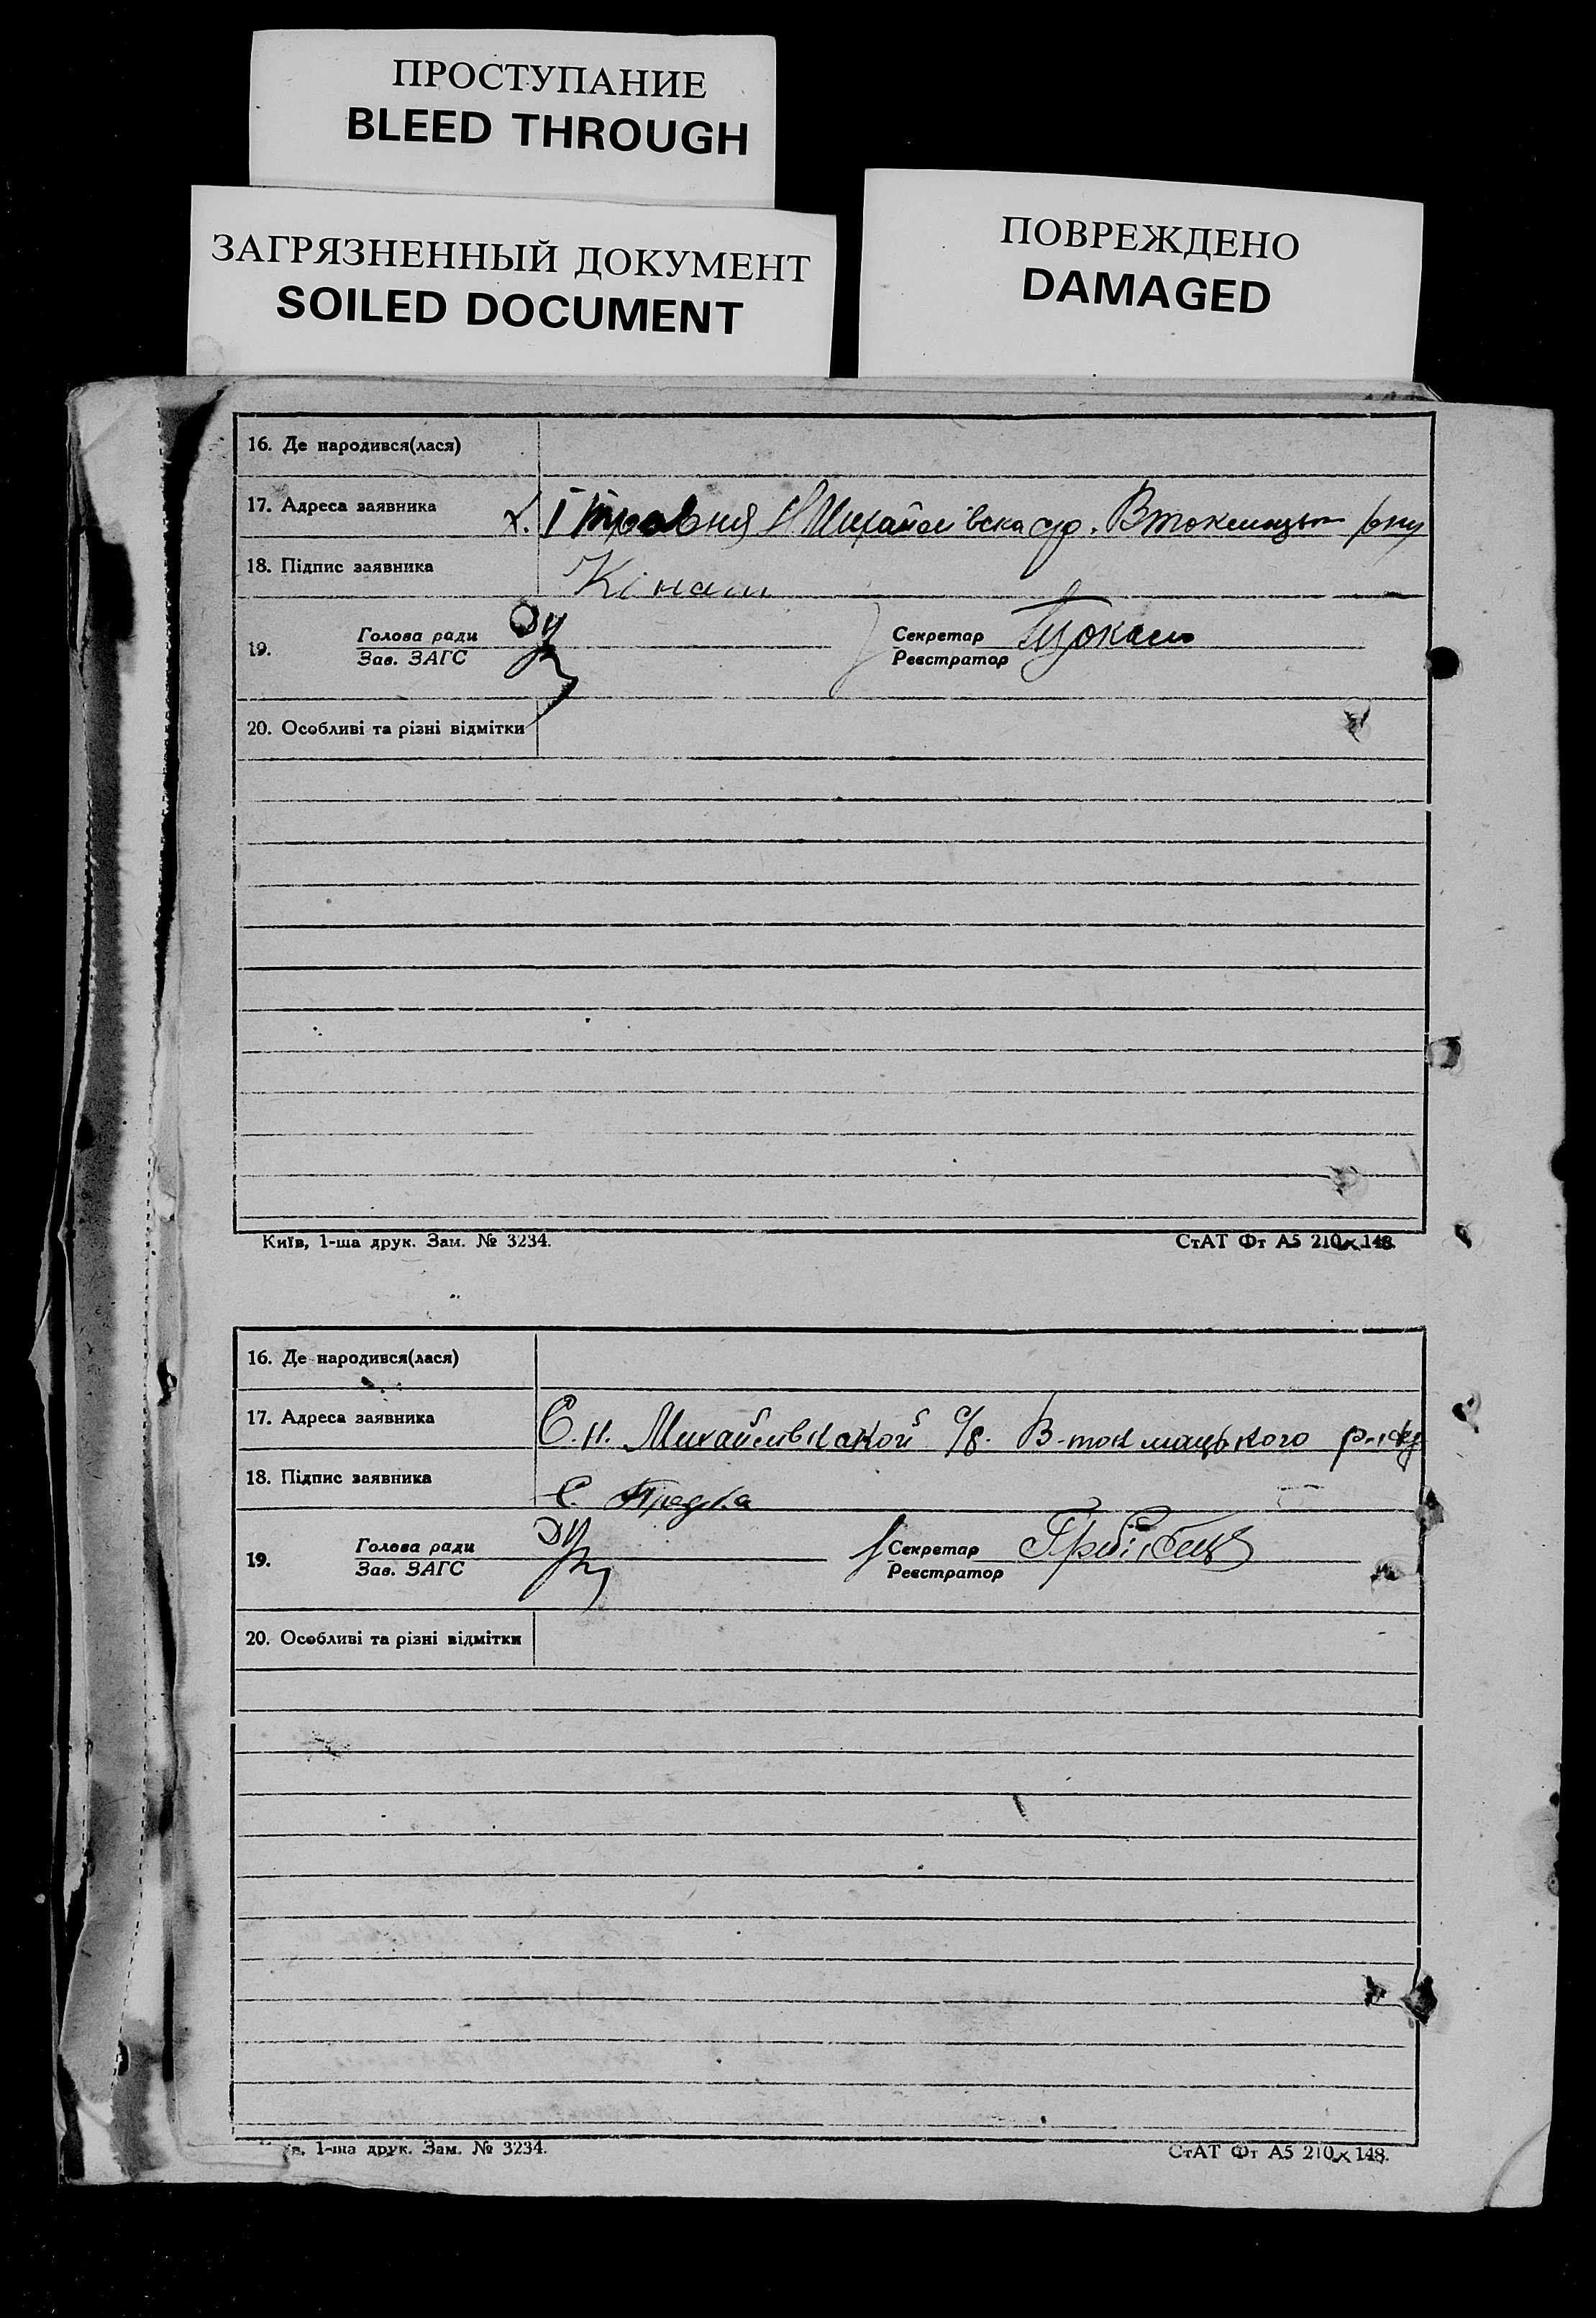 ПРОСТУПАНИЕ
BLEED THROUGH
ЗАГРЯЗНЕННЫЙ ДОКУМЕНТ
SOILED DOCUMENT
ПОВРЕЖДЕНО
DAMAGED
16. Де народився(лася)
17. Адреса заявника х. 1 травня Н Михайлівська с/р. Втокмацьк
18. Підпис заявника Кінаш
19. Голова ради Секретар
Зав. ЗАГС Реєстратор
20. Особливі та різні відмітки
Київ, 1-ша друк. Зам. № 3234. СтАТ Фт А5 210×148.
16. Де народився(лася)
17. Адреса заявника С. Н. Михайлівської с/р. В-токмацького р-ну
18. Підпис заявника С.
19. Голова ради Секретар
Зав. ЗАГС Реєстратор
20. Особливі та різні відмітки
1-ша друк. Зам. № 3234. СтАТ Фт А5 210×148.